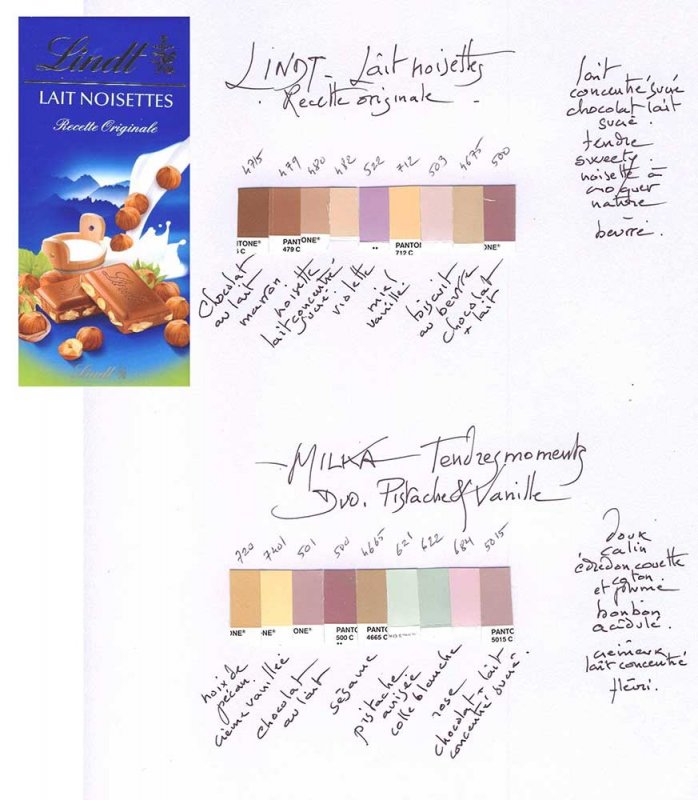 Lindt
LAIT NOISETTES
Recette Originale
Lindt
Lindt
LINDT - Lait noisettes
Recette originale.
lait
concentré sucré
chocolat lait
sucré.
tendre
sweety.
noisette à
croquer
nature
beurré.
4715 479 480 482 522 712 503 4675 500
5 C
TONE®
PANT
479 C
TONE®
PANTO
712 C
ONE®
chocolat
au lait
marron
noisette
lait concentré
sucré.
violette
miel
vanillé.
biscuit
au beurre
chocolat
+ lait
- MILKA - Tendres moments
Duo. Pistache & Vanille
720 7401 501 500 4665 621 622 684 5015
ONE®
NE®
ONE®
PANTO
500 C
PANTC
4665 C
PANTC
5015 C
noix de
pécan.
crème vanillée
chocolat
au lait
sésame
pistache
anisée
colle blanche
rose
chocolat + lait
concentré sucré.
doux
calin
édredon couette
coton
et plume
bonbon
acidulé.
crémeux
lait concentré
fleuri.